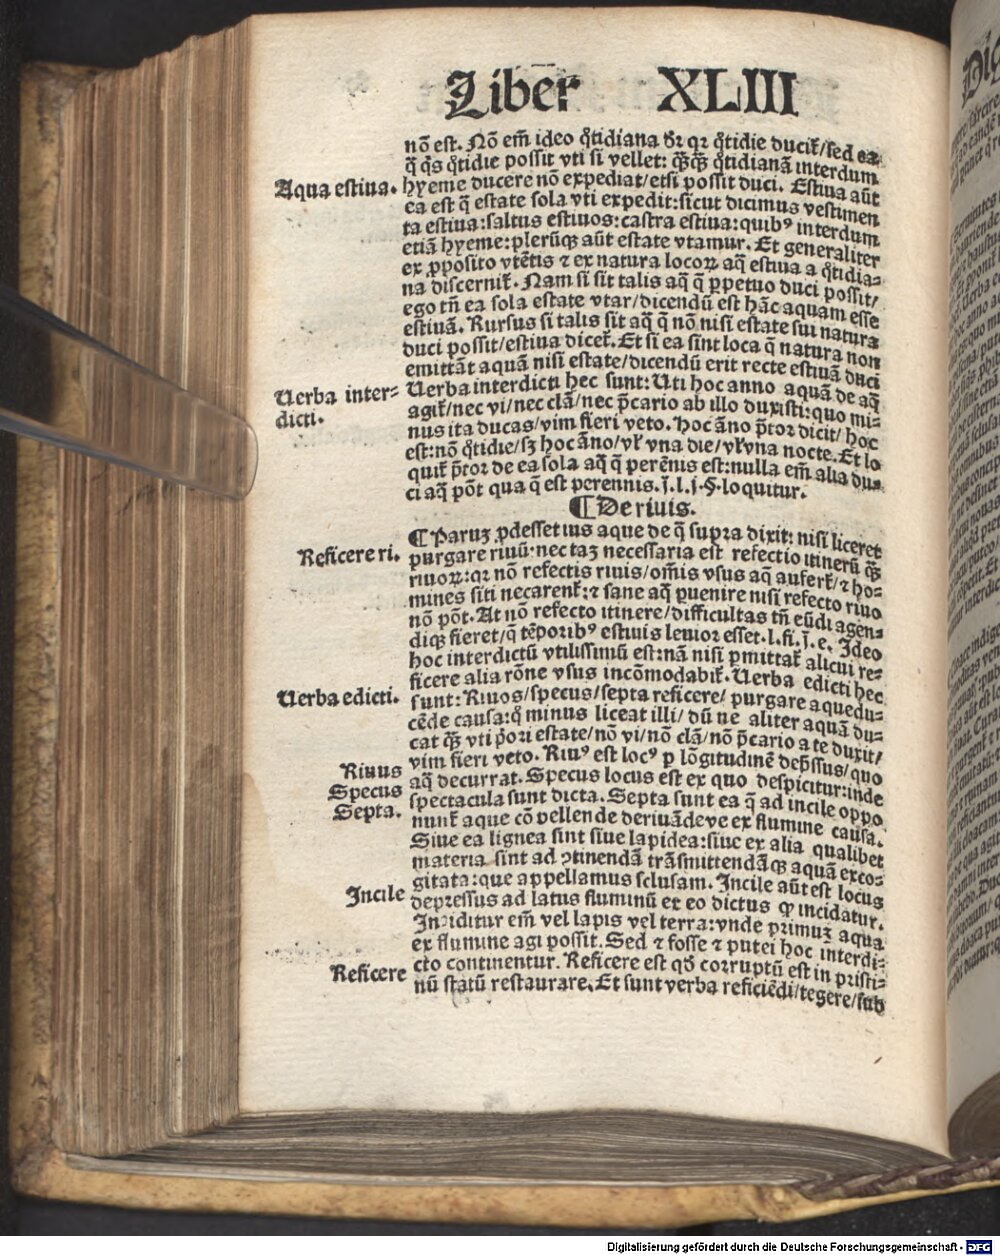 Liber XLIII
nō est. Nō em̄ ideo q̊tidiana dr̄ qr q̊tidie ducit̉/sed ea
q̄ q̇s q̊tidie possit vti si vellet: q̄ȝq̄ȝ q̊tidianā interdum
Aqua estiua. hyeme ducere nō expediat/etsi possit duci. Estiua aūt
ea est q̄ estate sola vti expedit:sicut dicimus vestimen
ta estiua:saltus estiuos:castra estiua:quibꝰ interdum
etiā hyeme:plerūqȝ aūt estate vtamur. Et generaliter
ex ꝓposito vtētis ⁊ ex natura locoꝝ aq̄ estiua a q̊tidia⸗
na discernit̉. Nam si sit talis aq̄ q̄ ꝑpetuo duci possit/
ego tn̄ ea sola estate vtar/dicendū est hāc aquam esse
estiuā. Rursus si talis sit aq̄ q̄ nō nisi estate sui natura
duci possit/estiua dicet̉. Et si ea sint loca q̄ natura non
emittāt aquā nisi estate/dicendū erit recte estiuā duci
Uerba inter⸗
dicti.
Uerba interdicti hec sunt:Uti hoc anno aquā de aq̄
agit̉/nec vi/nec clā/nec p̄cario ab illo duxisti:quo mi⸗
nus ita ducas/vim fieri veto. Hoc āno p̄tor dicit/ hoc
est:nō q̊tidie/sȝ hoc āno/vl̉ vna die/vl̉vna nocte. Et lo
quit̉ p̄tor de ea sola aq̄ q̄ perēnis est:nulla em̄ alia du⸗
ci aq̄ pōt qua q̄ est perennis.j̄.l.j.§.loquitur.
¶De riuis.
¶Paruȝ ꝓdesset ius aque de q̄ supra dixit: nisi liceret
Reficere ri. purgare riuū:nec taȝ necessaria est refectio itinerū q̄ȝ
riuoꝝ:qr nō refectis riuis/om̄is vsus aq̄ aufert̉/⁊ ho⸗
mines siti necarent̉:⁊ sane aq̄ ꝑuenire nisi refecto riuo
nō pōt. At nō refecto itinere/difficultas tn̄ eūdi agen⸗
diqȝ fieret/q̄ tēporibꝰ estiuis leuior esset.l.fi.j̄.e. Ideo
hoc interdictū vtilissimū est:nā nisi ꝑmittat̉ alicui re⸗
ficere alia rōne vsus incōmodabit̉. Uerba edicti hec
Uerba edicti. sunt: Riuos/specus/septa reficere/ purgare aquedu⸗
cēde causa:q̊ minus liceat illi/ dū ne aliter aquā du⸗
cat q̄ȝ vti p̄ori estate/nō vi/nō clā/nō p̄cario a te duxit/
vim fieri veto. Riuꝰ est locꝰ ꝑ lōgitudinē dep̄ssus/quo
Riuus aq̄ decurrat. Specus locus est ex quo despicitur:inde
Specus spectacula sunt dicta. Septa sunt ea q̄ ad incile oppo
Septa. nunt̉ aque cōpellende deriuādeve ex flumine causa.
Siue ea lignea sint siue lapidea:siue ex alia qualibet
materia sint ad ↄtinendā trāsmittendāqȝ aquā exco⸗
gitata:que appellamus sclusam. Incile aūt est locus
Incile depressus ad latus fluminū ex eo dictus ꝙ incidatur.
Inciditur em̄ vel lapis vel terra:vnde primuȝ aqua
ex flumine agi possit. Sed ⁊ fosse ⁊ putei hoc interdi⸗
cto continentur. Reficere est qd̄ corruptū est in pristi⸗
Reficere nū statū restaurare. Et sunt verba reficiēdi/tegere/sub
Digitalisierung gefördert durch die Deutsche Forschungsgemeinschaft - DFG